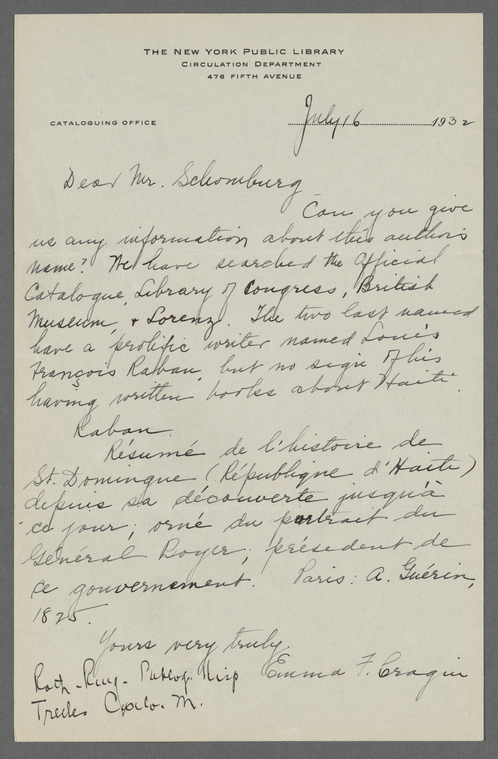 THE NEW YORK PUBLIC LIBRARY
CIRCULATION DEPARTMENT
476 FIFTH AVENUE
CATALOGUING OFFICE
July 16 1932
Dear Mr. Schomburg
Can you give
us any information about this author's
name? We have searched the Official
Catalogue, Library of Congress, British
Museum, + Lorenz. The two last named
have a prolific writer named Louis
François Raban, but no sign of his
having written books about Haiti.
Raban.
Résumé de l'histoire de
St. Domingue (République d'Haiti)
depuis sa découverte jusqu'à
ce jour; orné du portrait du
Général Boyer, président de
ce gouvernement. Paris: A. Guérin,
1825.
Yours very truly,
Emma F. Cragin